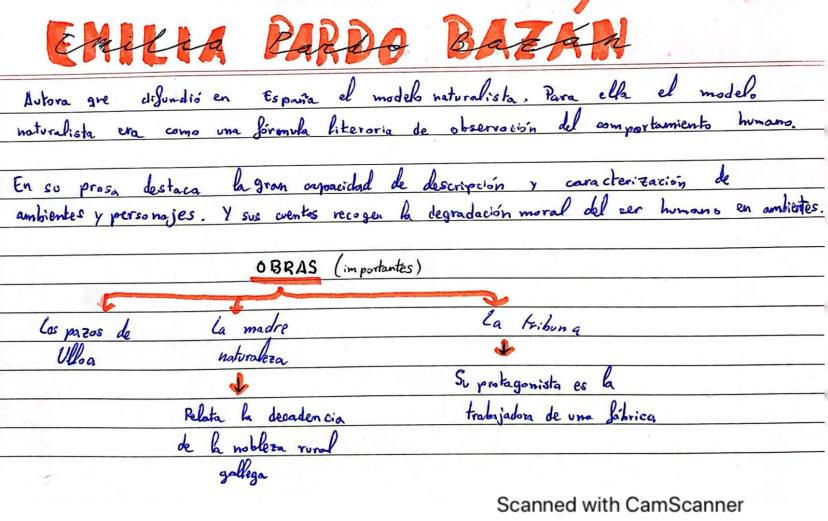 EMILIA PARDO BAZÁN
Autora que difundió en España el modelo naturalista. Para ella el modelo
naturalista era como una fórmula literaria de observación del comportamiento humano.
En su prosa destaca la gran capacidad de descripción y caracterización de
ambientes y personajes. Y sus cuentos recogen la degradación moral del ser humano en ambientes.
OBRAS (importantes)
Los pazos de
Ulloa
La madre
naturaleza
Relata la decadencia
de la nobleza rural
gallega
La tribuna
Su protagonista es la
trabajadora de una fábrica
Scanned with CamScanner